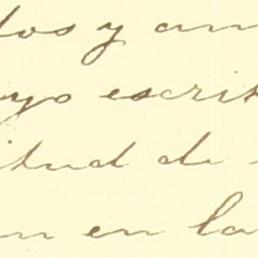 dos y am
yo escrit
itud de
n en la